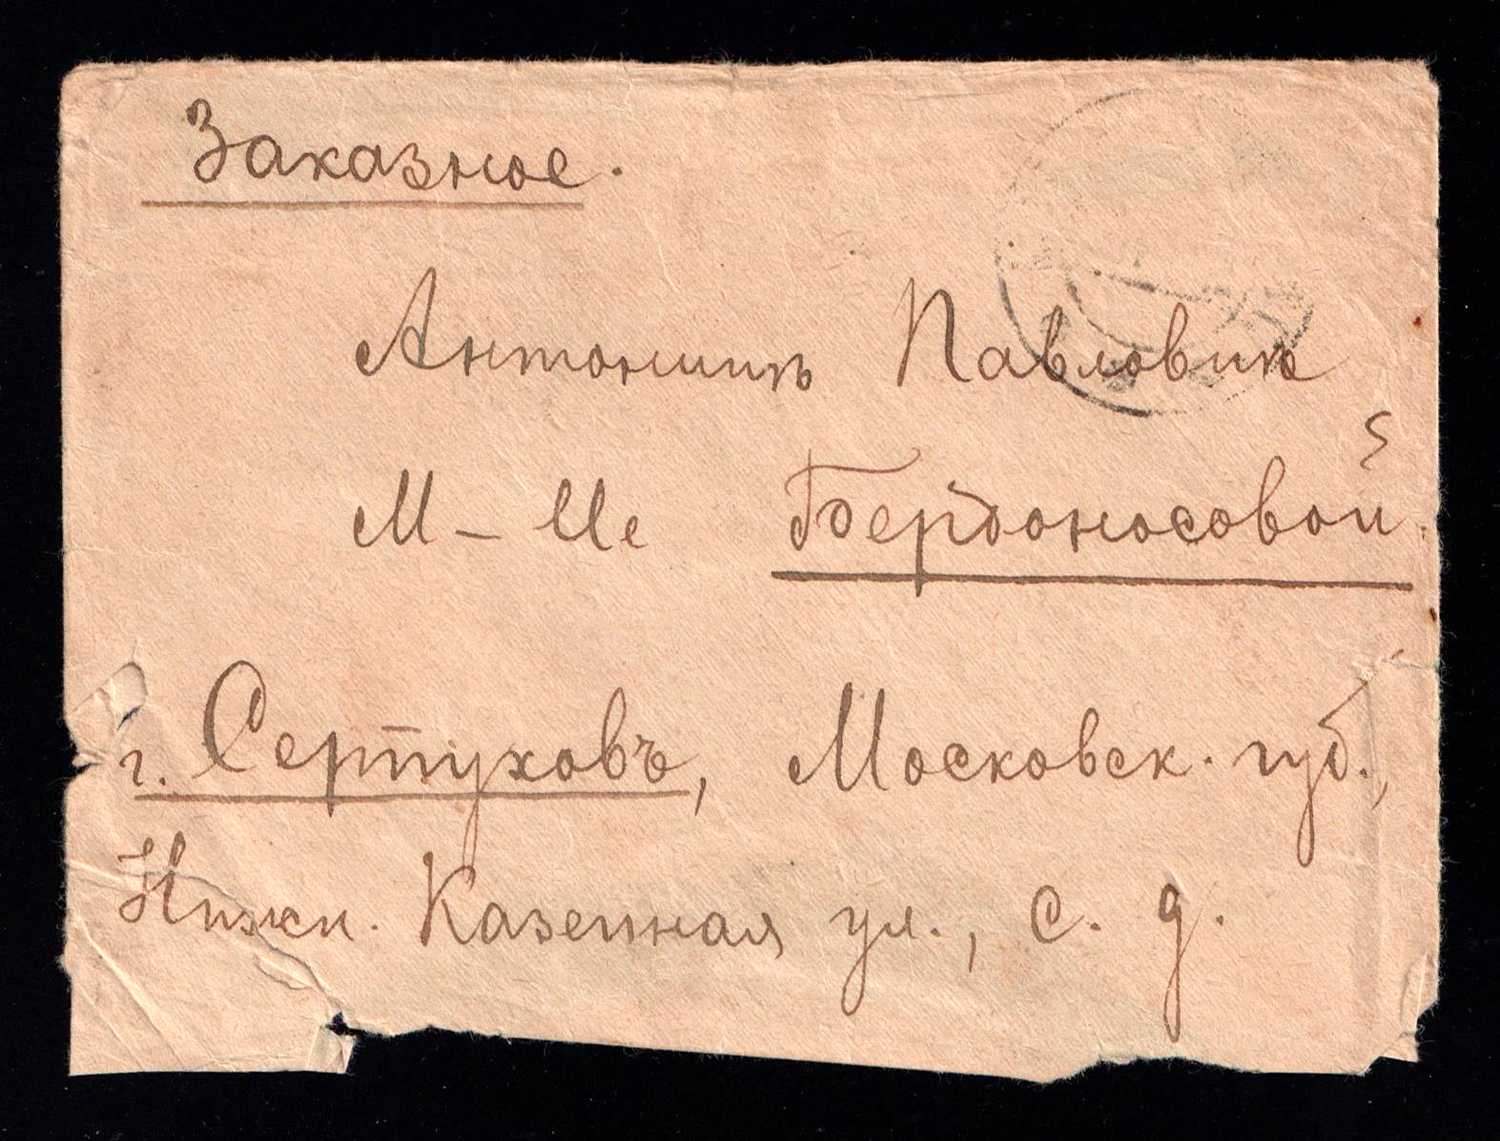 Заказное.
Антонинѣ Павловнѣ
М-Ме Бердоносовой.
г. Серпуховъ, Московск. губ.,
Нижн. Казенная ул., с. д.